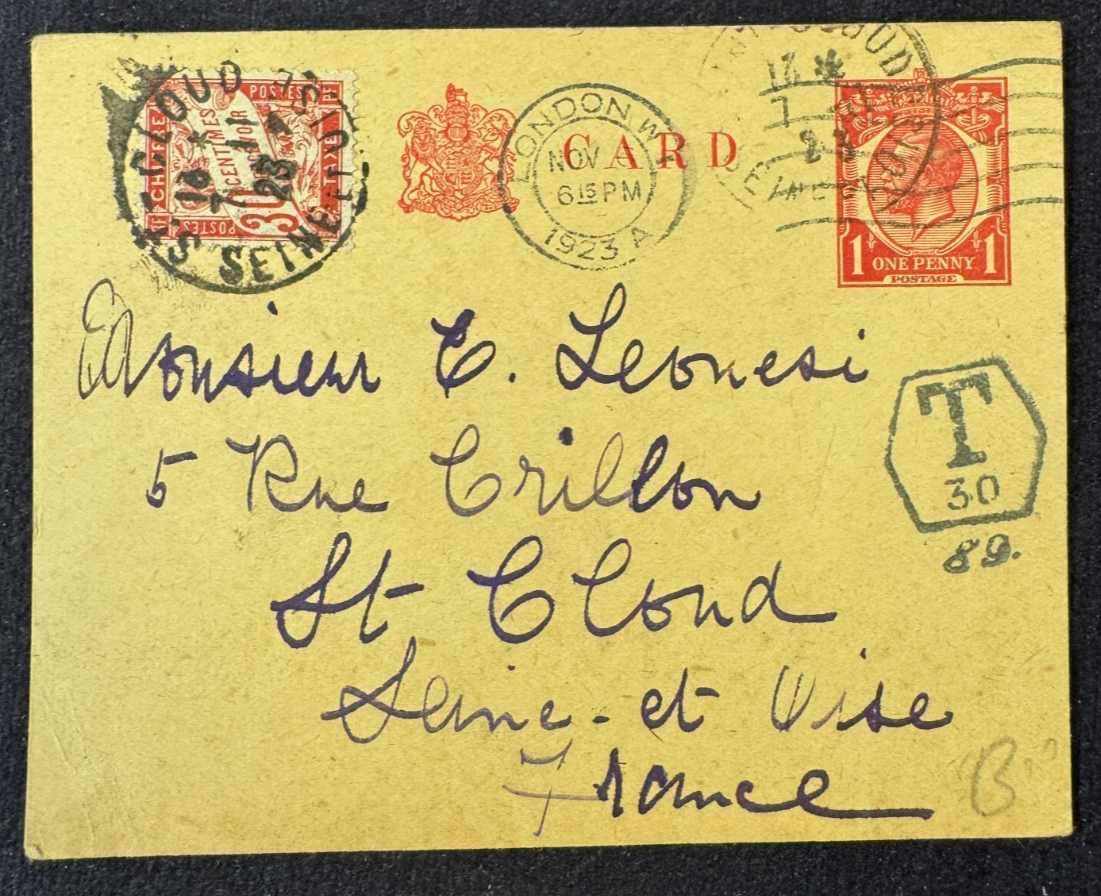 ST CLOUD
16 *
7 11
23
SEINE ET OISE
POSTES
CHIFFRE
TAXE
CENTIMES
30
POSTES
CARD
LONDON W
NOV
6 15 PM
1923 A
CLOUD
13
7
23
1 ONE PENNY 1
POSTAGE
Monsieur E. Leonesi
5 Rue Crillon
St Cloud
Seine-et Oise
France
T
30
89.
B